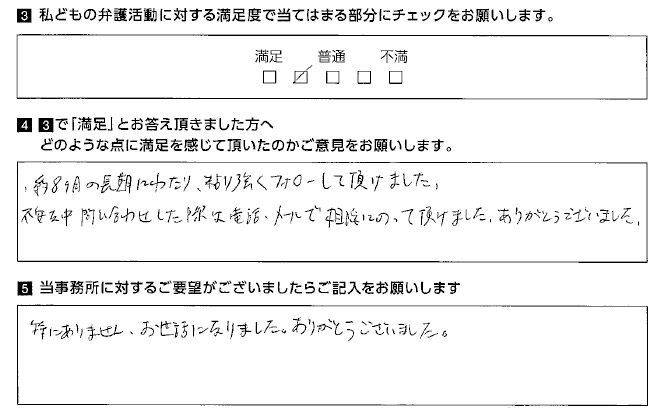 3 私どもの弁護活動に対する満足度で当てはまる部分にチェックをお願いします。
満足 普通 不満
□ ☑ □ □ □
4 3で「満足」とお答え頂きました方へ
どのような点に満足を感じて頂いたのかご意見をお願いします。
約8ヶ月の長期にわたり、粘り強くフォローして頂けました。
不安な中 問い合わせした際は電話、メールで相談にのって頂けました。ありがとうございました。
5 当事務所に対するご要望がございましたらご記入をお願いします
特にありません、お世話になりました。ありがとうございました。